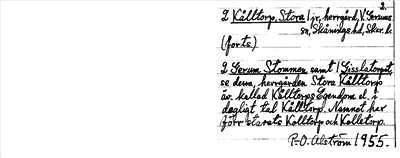 2.
2 Kålltorp, Stora / jr, herrgård, V. Gerums
sn, Skånings hd, Skar. l.
(forts.)
2 Gerum Stommen samt / Gisslatorpet,
se dessa, herrgården Stora Kålltorp
äv. kallad Kålltorps Egendom el. i
dagligt tal Kålltorp. Namnet har
förr stavats Kolltorp och Kolletorp.
P-O. Alström 1955.